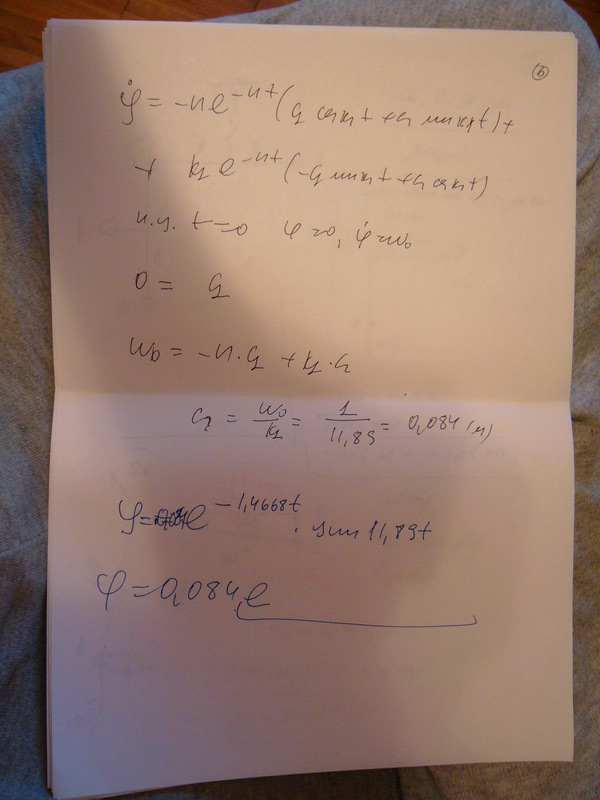 6
φ̇ = -n e^{-nt} (c₁ cos k₁t + c₂ sin k₁t) +
+ k₁ e^{-nt} (-c₁ sin k₁t + c₂ cos k₁t)
н.у. t=0 φ=0, φ̇=ω₀
0 = c₁
ω₀ = -n·c₁ + k₁·c₂
c₂ = ω₀/k₁ = 1/11,89 = 0,084 (м)
φ = e^{-1,4668t} · sin 11,89t
φ = 0,084 e